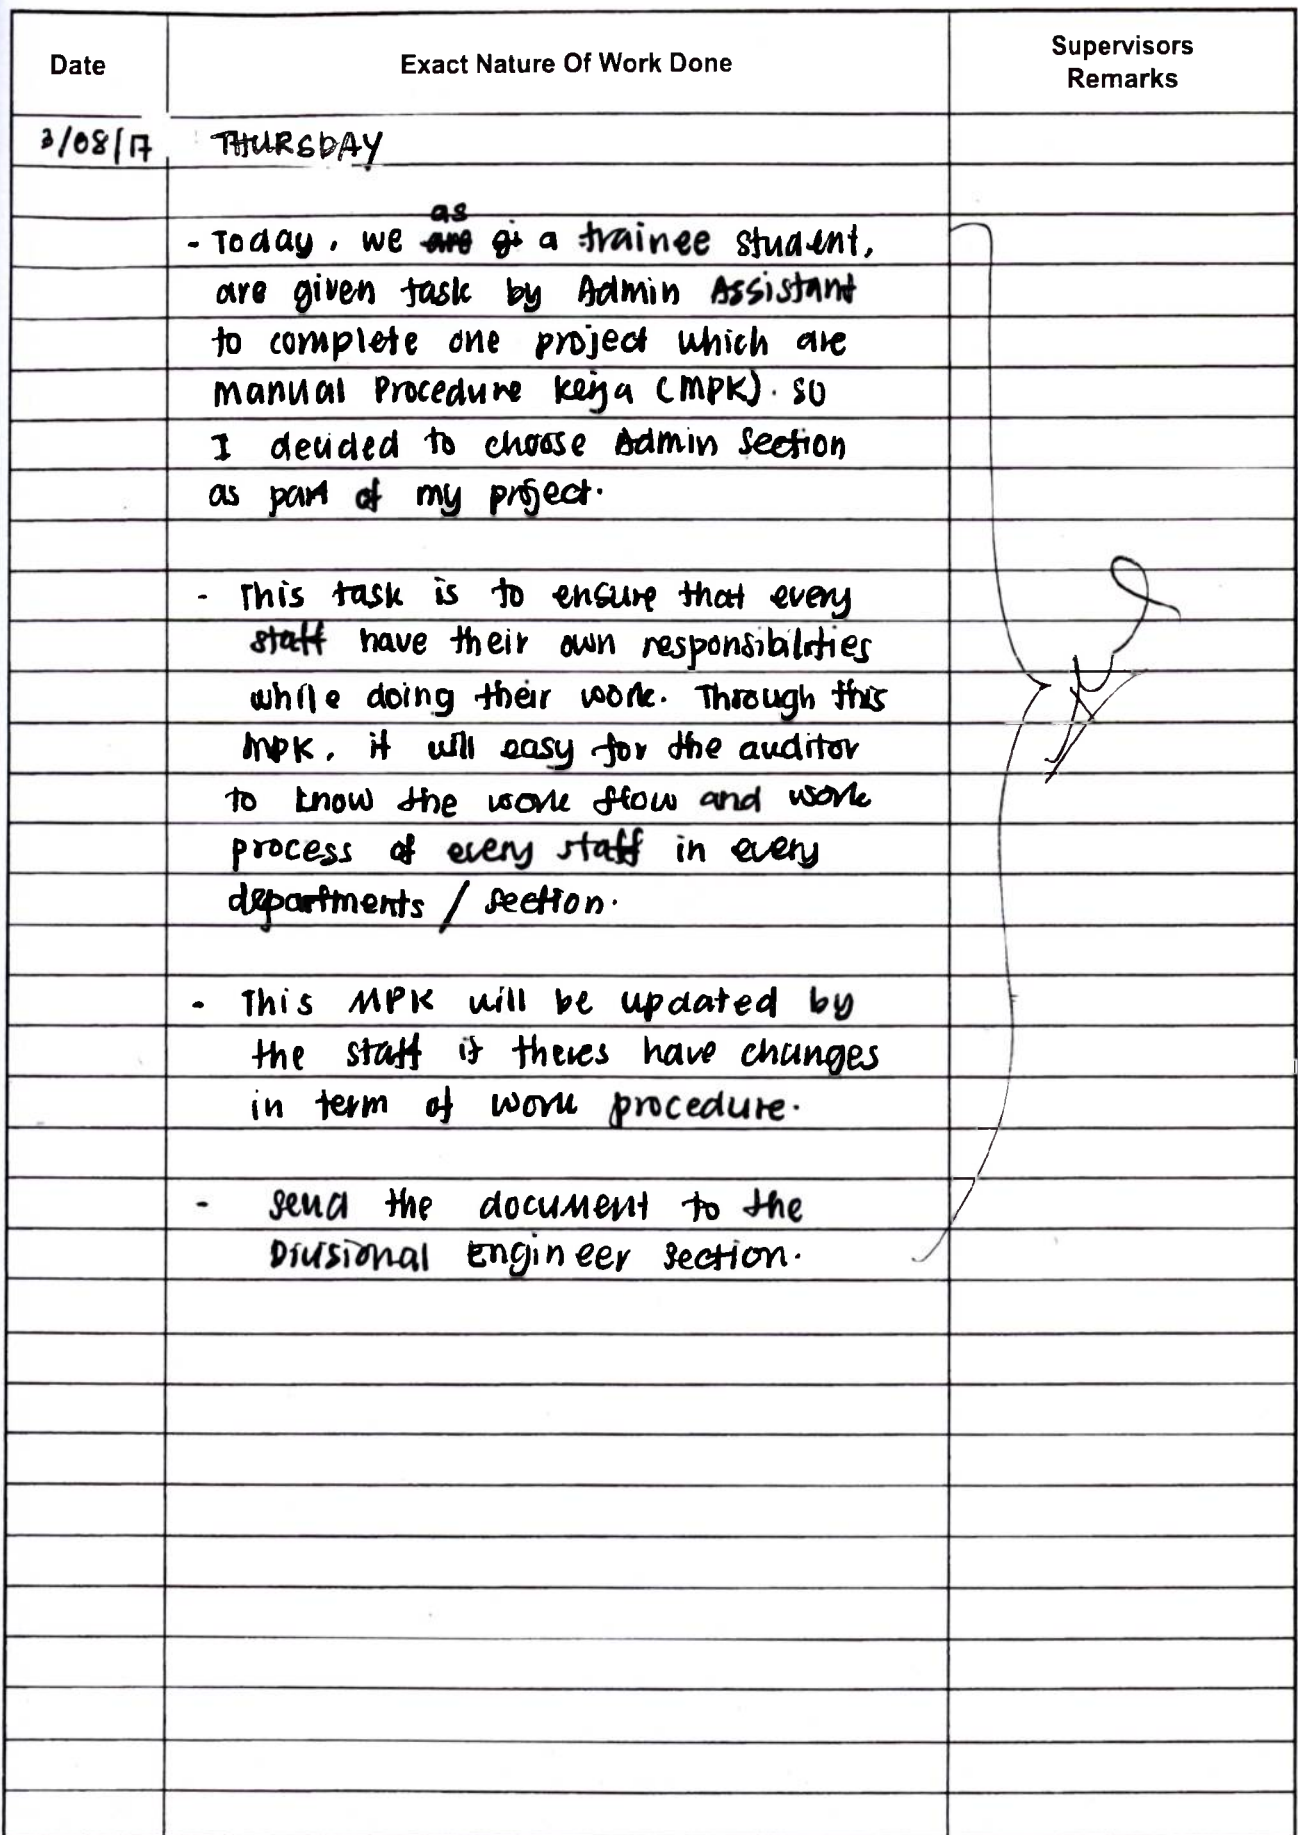 Date
Exact Nature Of Work Done
Supervisors
Remarks
3/08/17
THURSDAY
as
- Today, we are gi a trainee student,
are given task by Admin Assistant
to complete one project which are
manual Procedure kerja (MPK). so
I decided to choose Admin Section
as part of my project.
- This task is to ensure that every
staff have their own responsibilities
while doing their work. Through this
MPK, it will easy for the auditor
to know the work flow and work
process of every staff in every
departments / section.
- This MPK will be updated by
the staff if theres have changes
in term of work procedure.
- Send the document to the
Divisional Engineer Section.